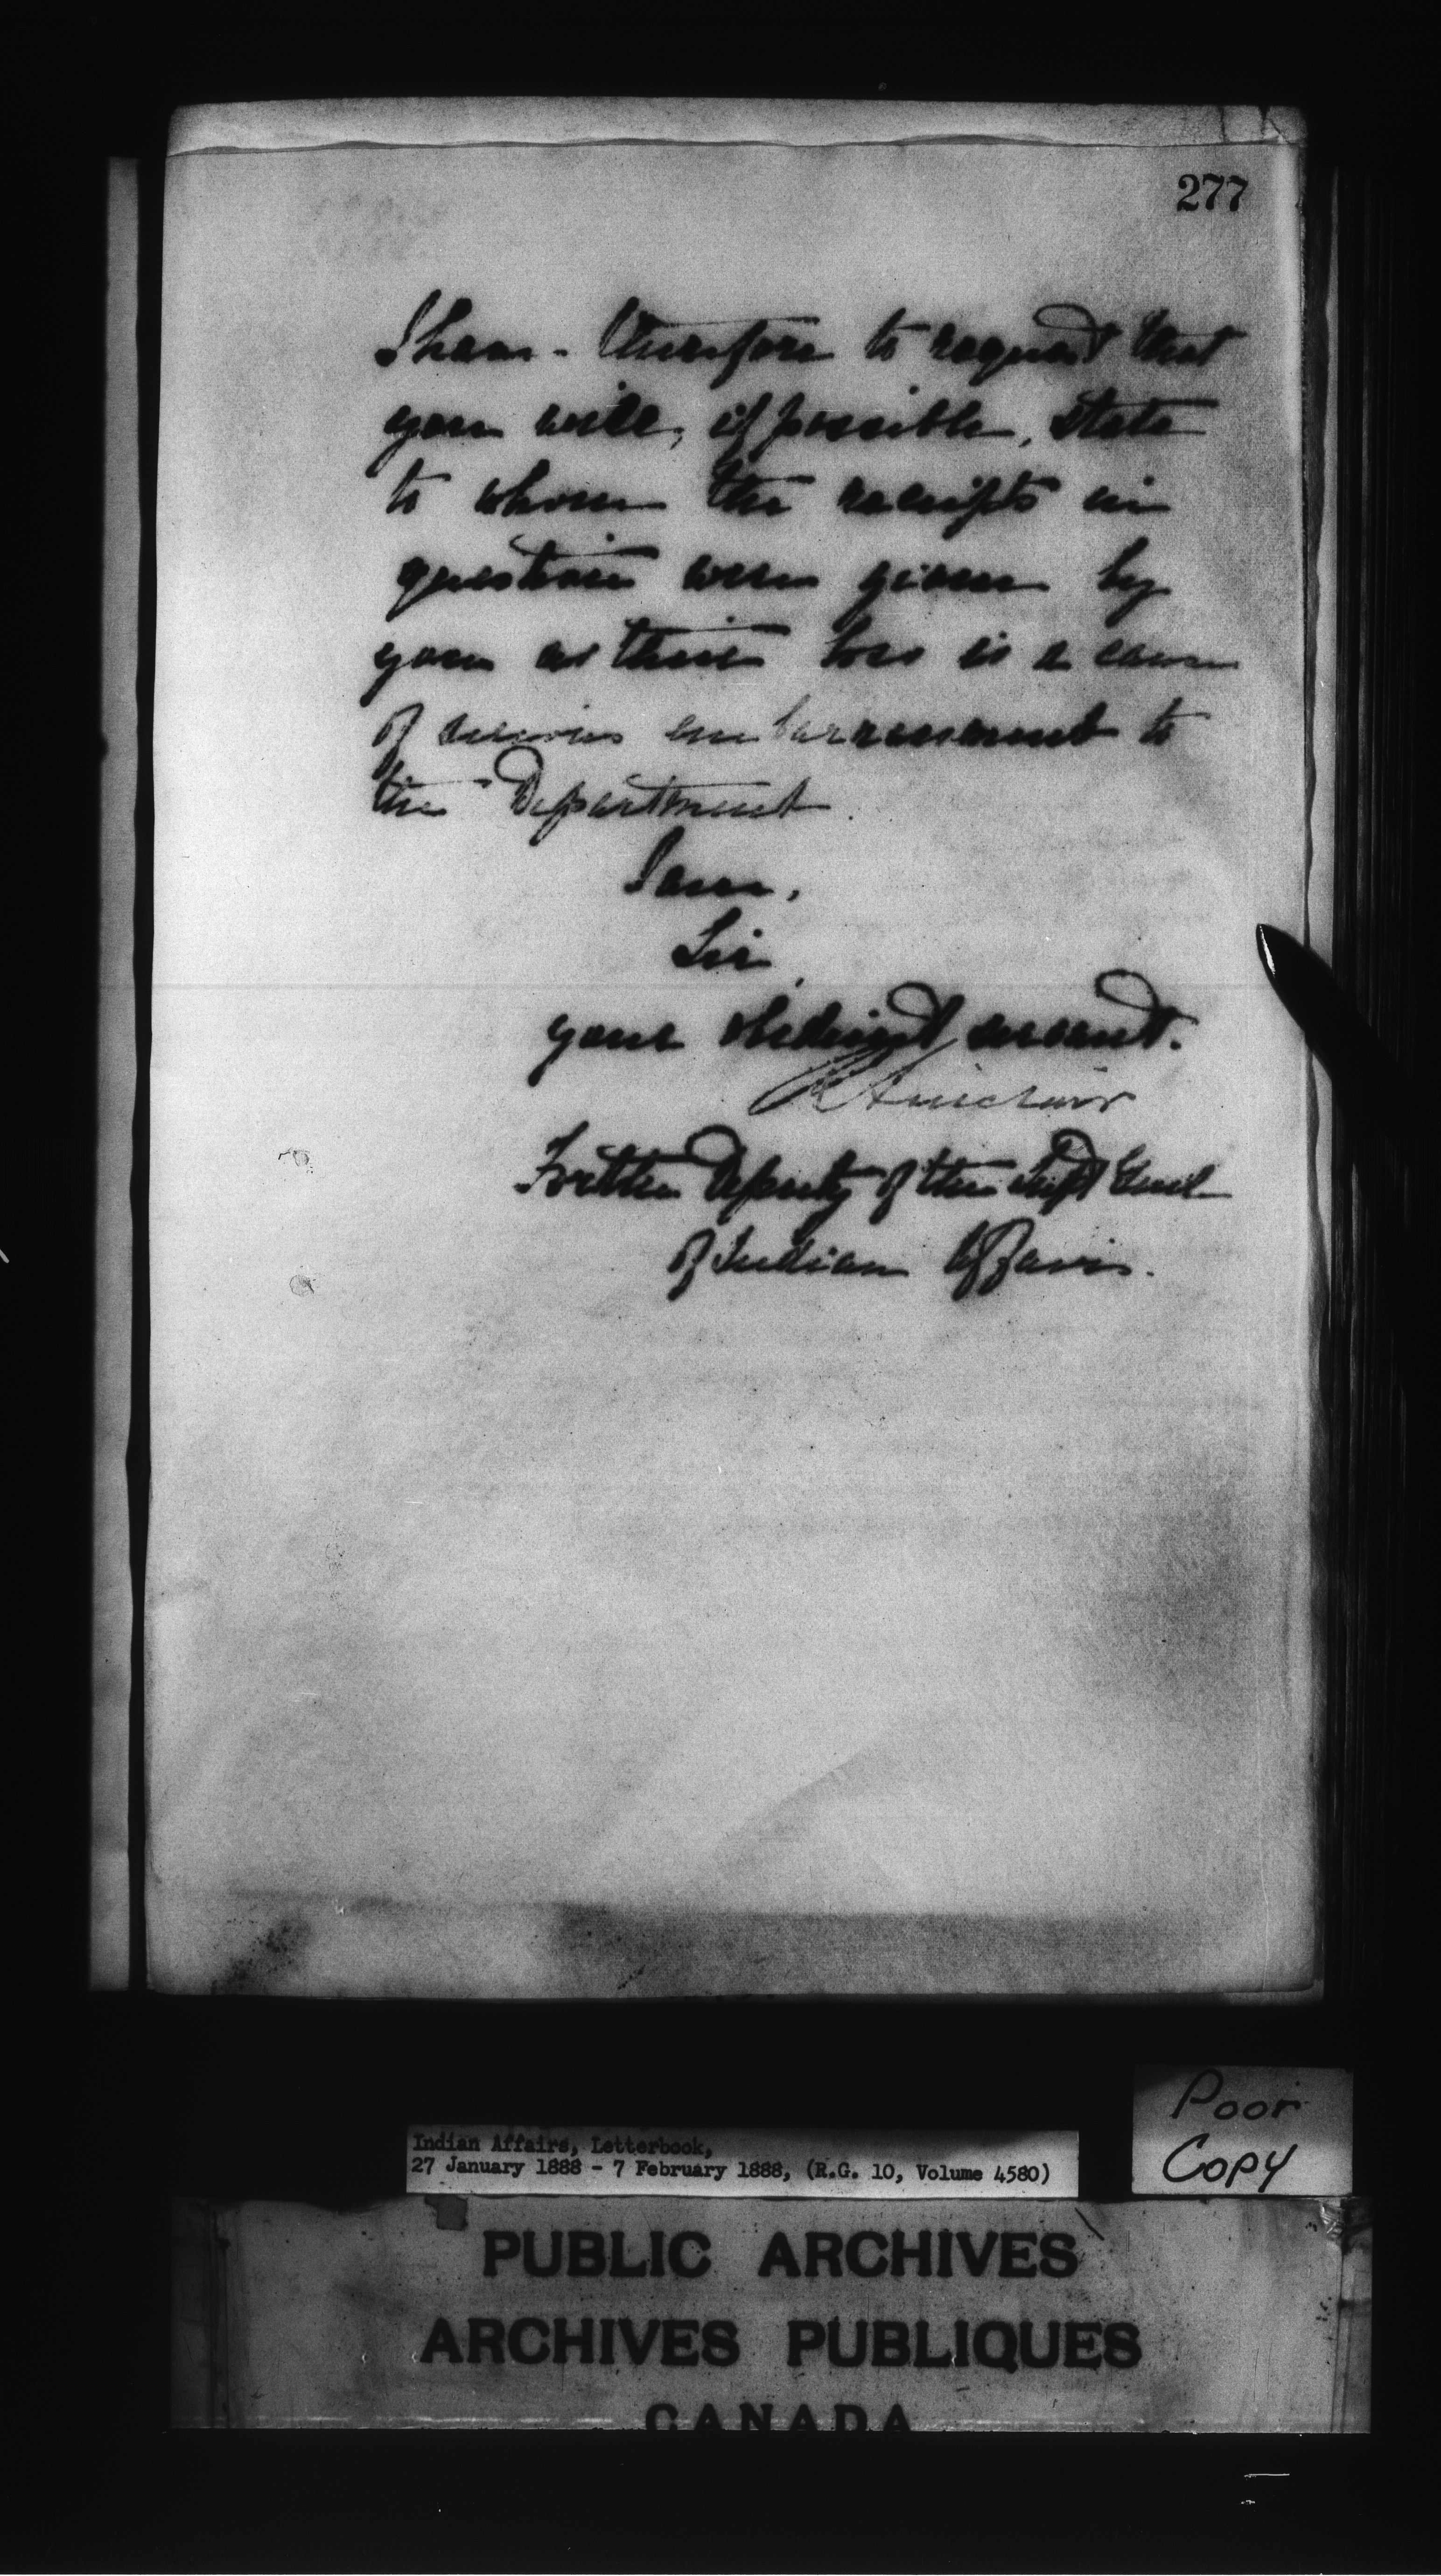 277
I have therefore to request that
you will, if possible, state
to whom the receipts in
question were given by
you as their loss is a cause
of serious embarrassment to
the Department.
I am,
Sir,
your obedient servant.
R Sinclair
For the Deputy of the Supt Genl
of Indian Affairs.
Poor
Copy
Indian Affairs, Letterbook,
27 January 1888 - 7 February 1888, (R.G. 10, Volume 4580)
PUBLIC ARCHIVES
ARCHIVES PUBLIQUES
CANADA